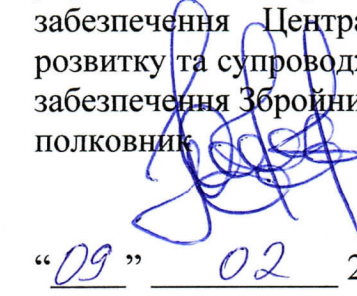 забезпечення Центра
розвитку та супровод
забезпечення Збройни
полковник
“09” 02 2